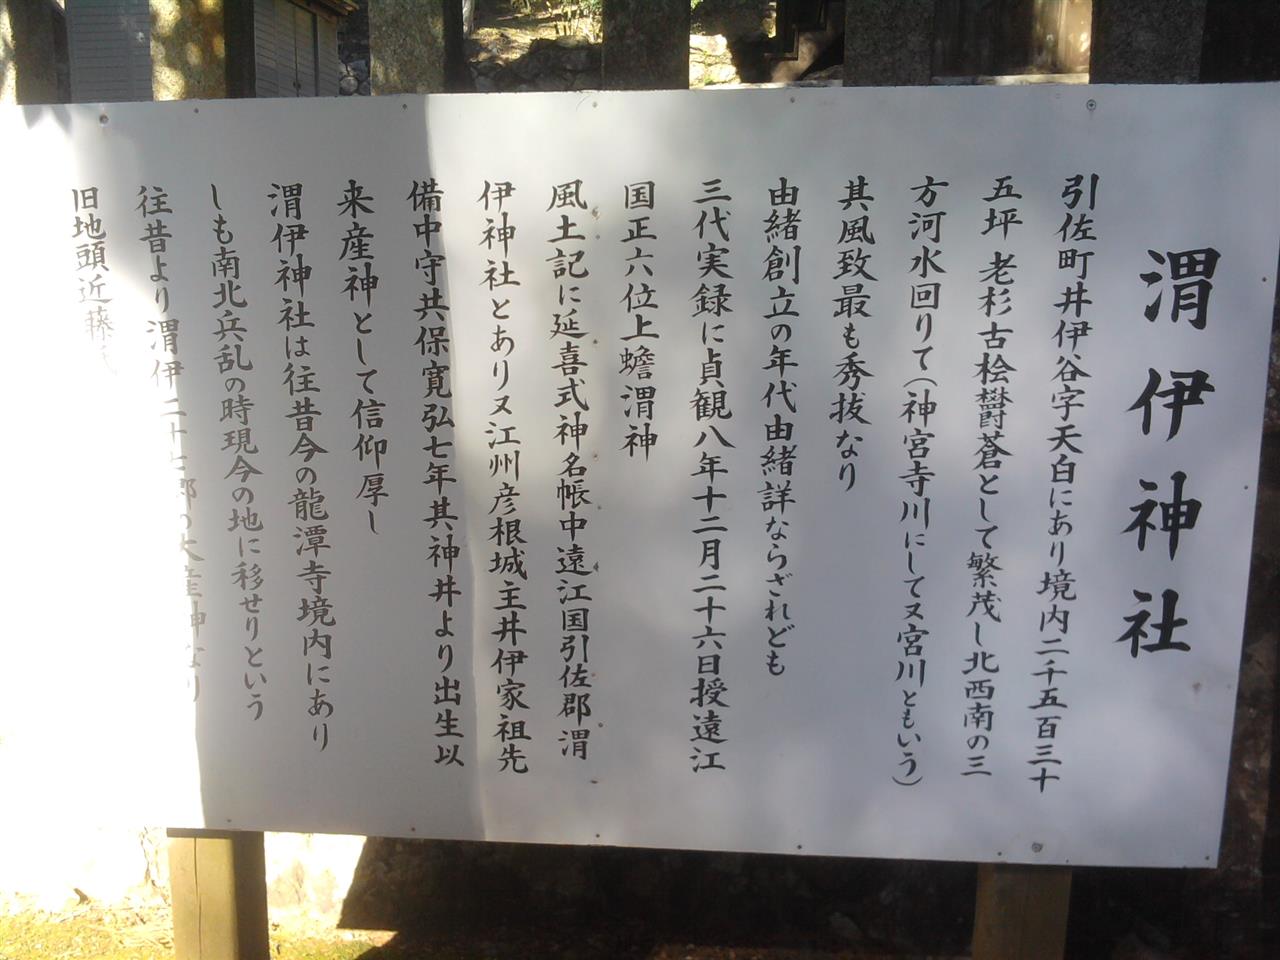 渭伊神社
引佐町井伊谷字天白にあり境内二千五百三十
五坪 老杉古桧欝蒼として繁茂し北西南の三
方河水回りて(神宮寺川にして又宮川ともいう)
其風致最も秀抜なり
由緒創立の年代由緒詳ならざれども
三代実録に貞観八年十二月二十六日授遠江
国正六位上蟾渭神
風土記に延喜式神名帳中遠江国引佐郡渭
伊神社とあり又江州彦根城主井伊家祖先
備中守共保寛弘七年其神井より出生以
来産神として信仰厚し
渭伊神社は往昔今の龍潭寺境内にあり
しも南北兵乱の時現今の地に移せりという
往昔より渭伊二十七郷の大産神なり
旧地頭近藤